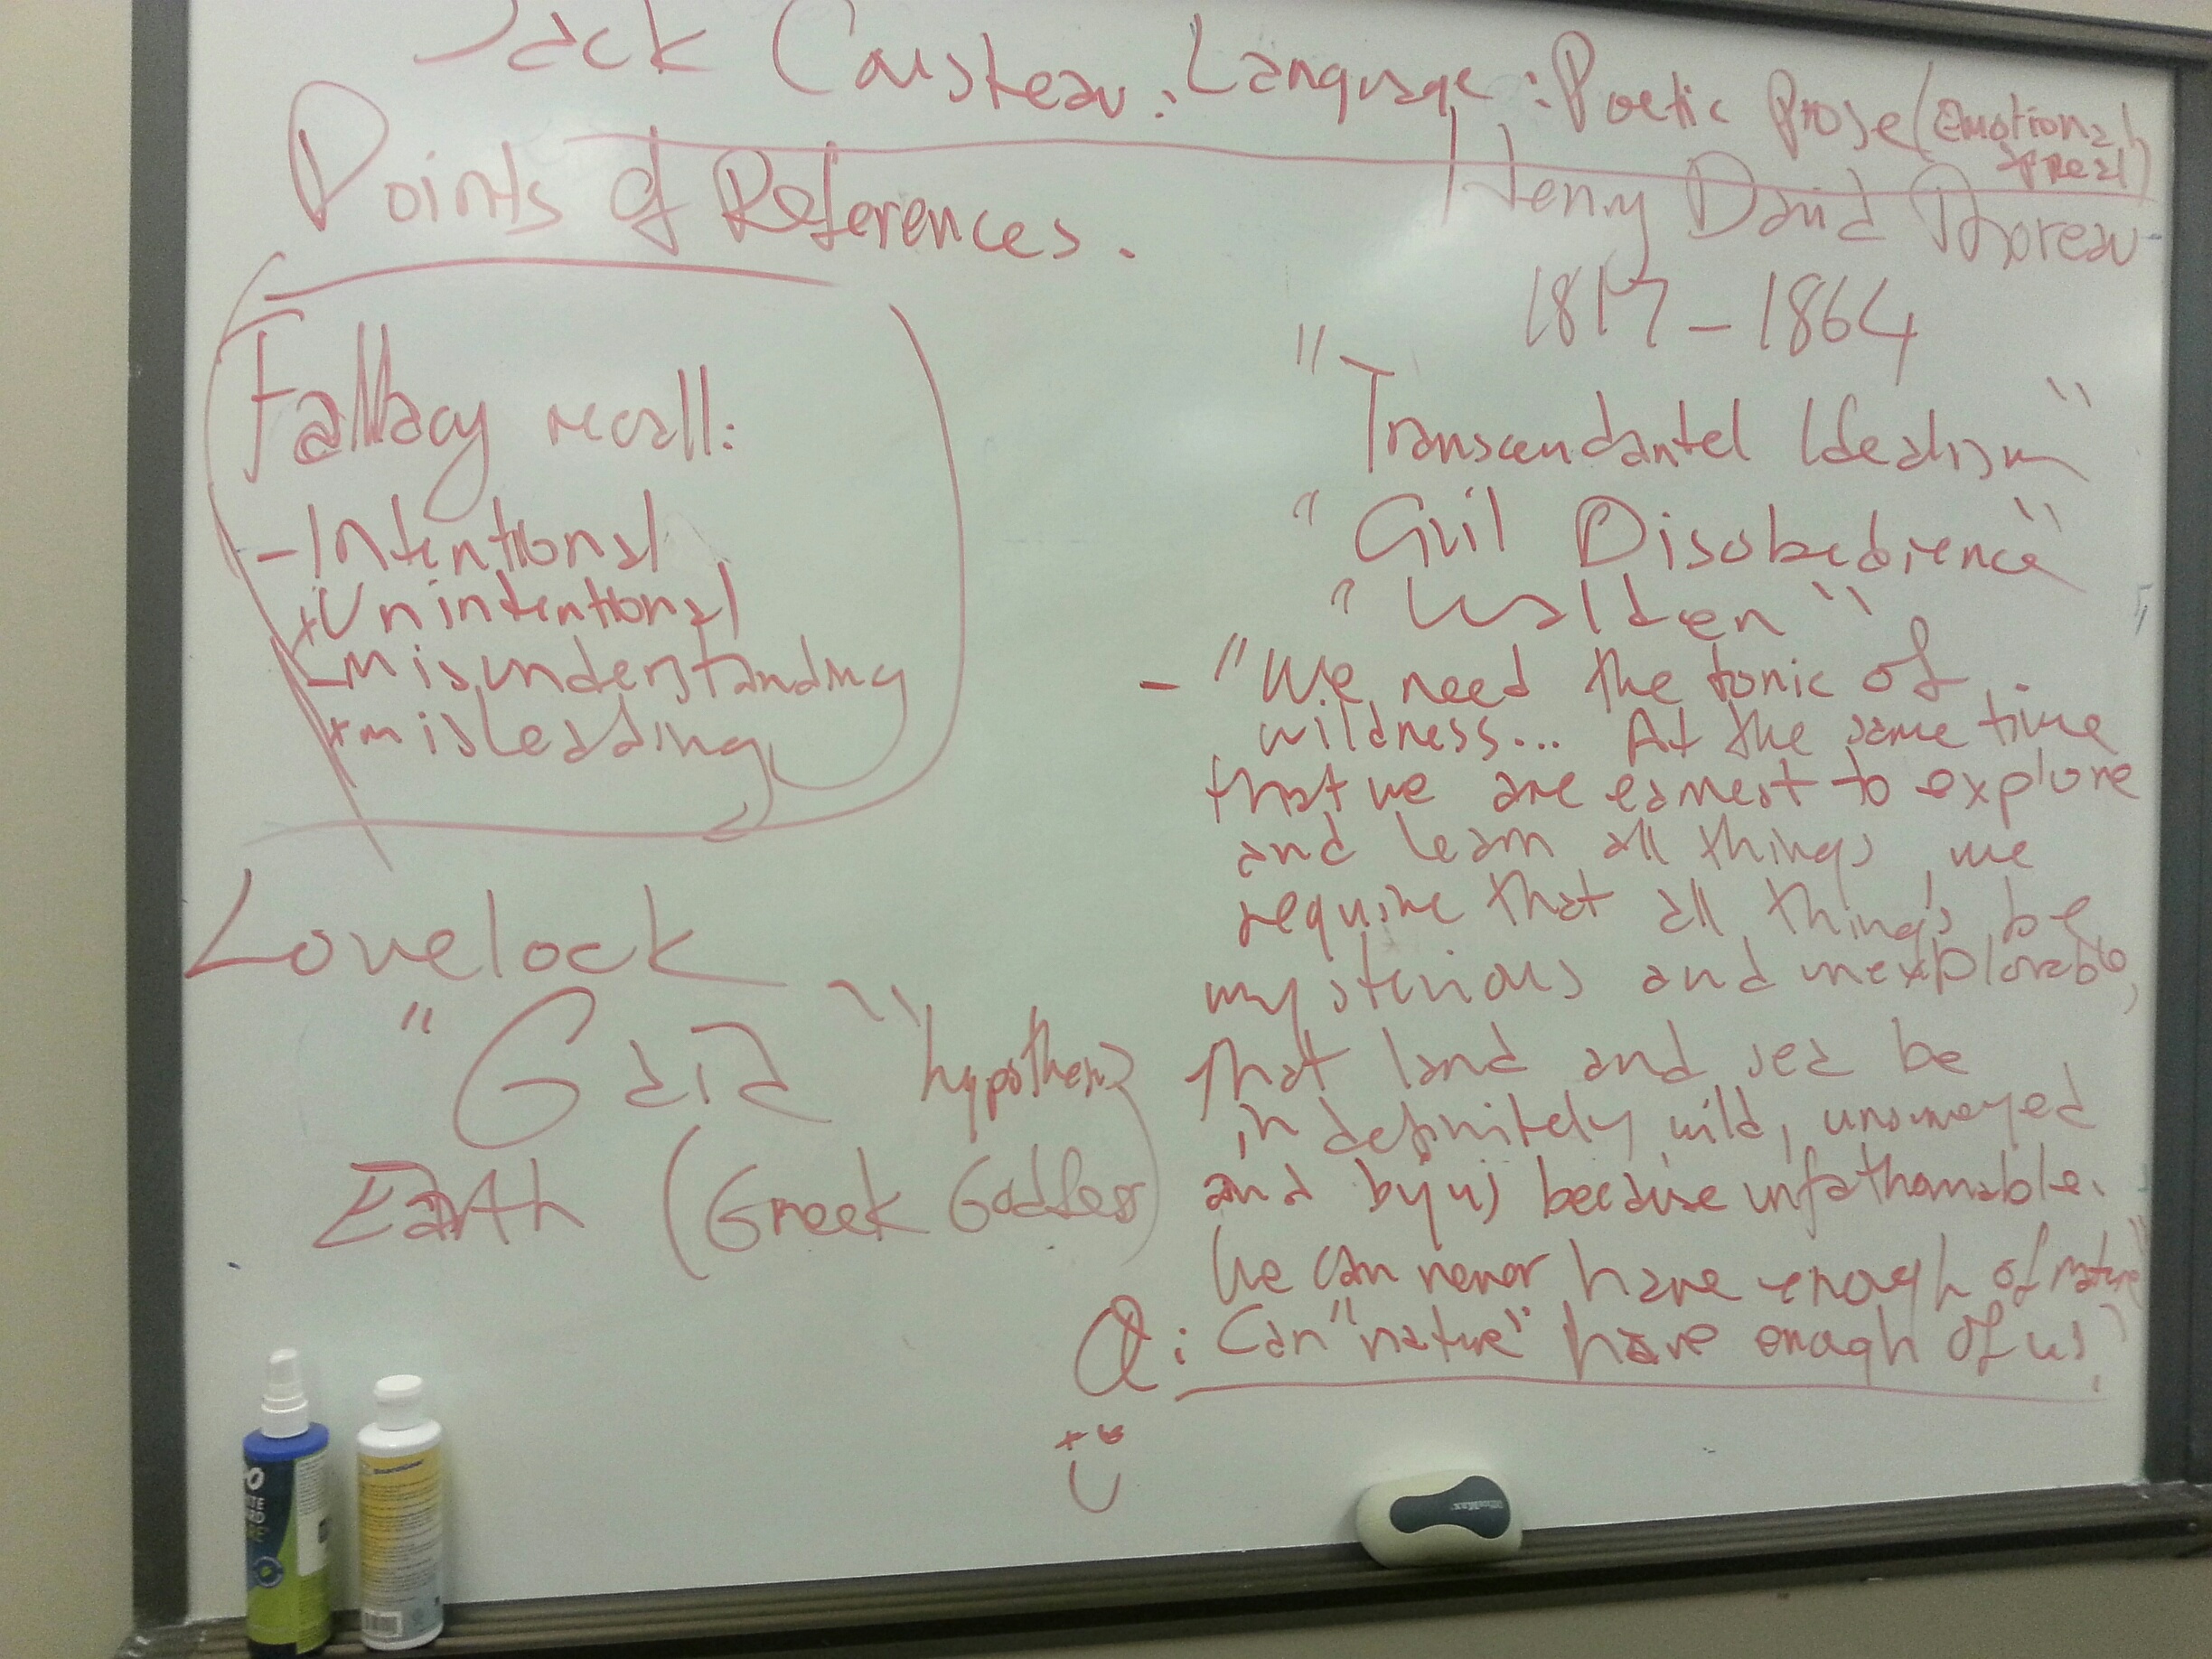 Jack Cousteau: Language: Poetic Prose (Emotional
appeal)
Points of References.
Fallacy recall:
- Intentional
* Unintentional
- misunderstanding
* misleading
Lovelock
"Gaia" hypothesis
Earth (Greek Goddess)
Henry David Thoreau
1817 - 1864
"Transcendantel Idealism"
"Civil Disobedience"
"Walden"
- "We need the tonic of
wildness... At the same time
that we are earnest to explore
and learn all things, we
require that all things be
mysterious and unexplorable,
that land and sea be
indefinitely wild, unsurveyed
and by us because unfathomable.
We can never have enough of nature"
Q: Can "nature" have enough of us?
BoardGear
OfficeMax